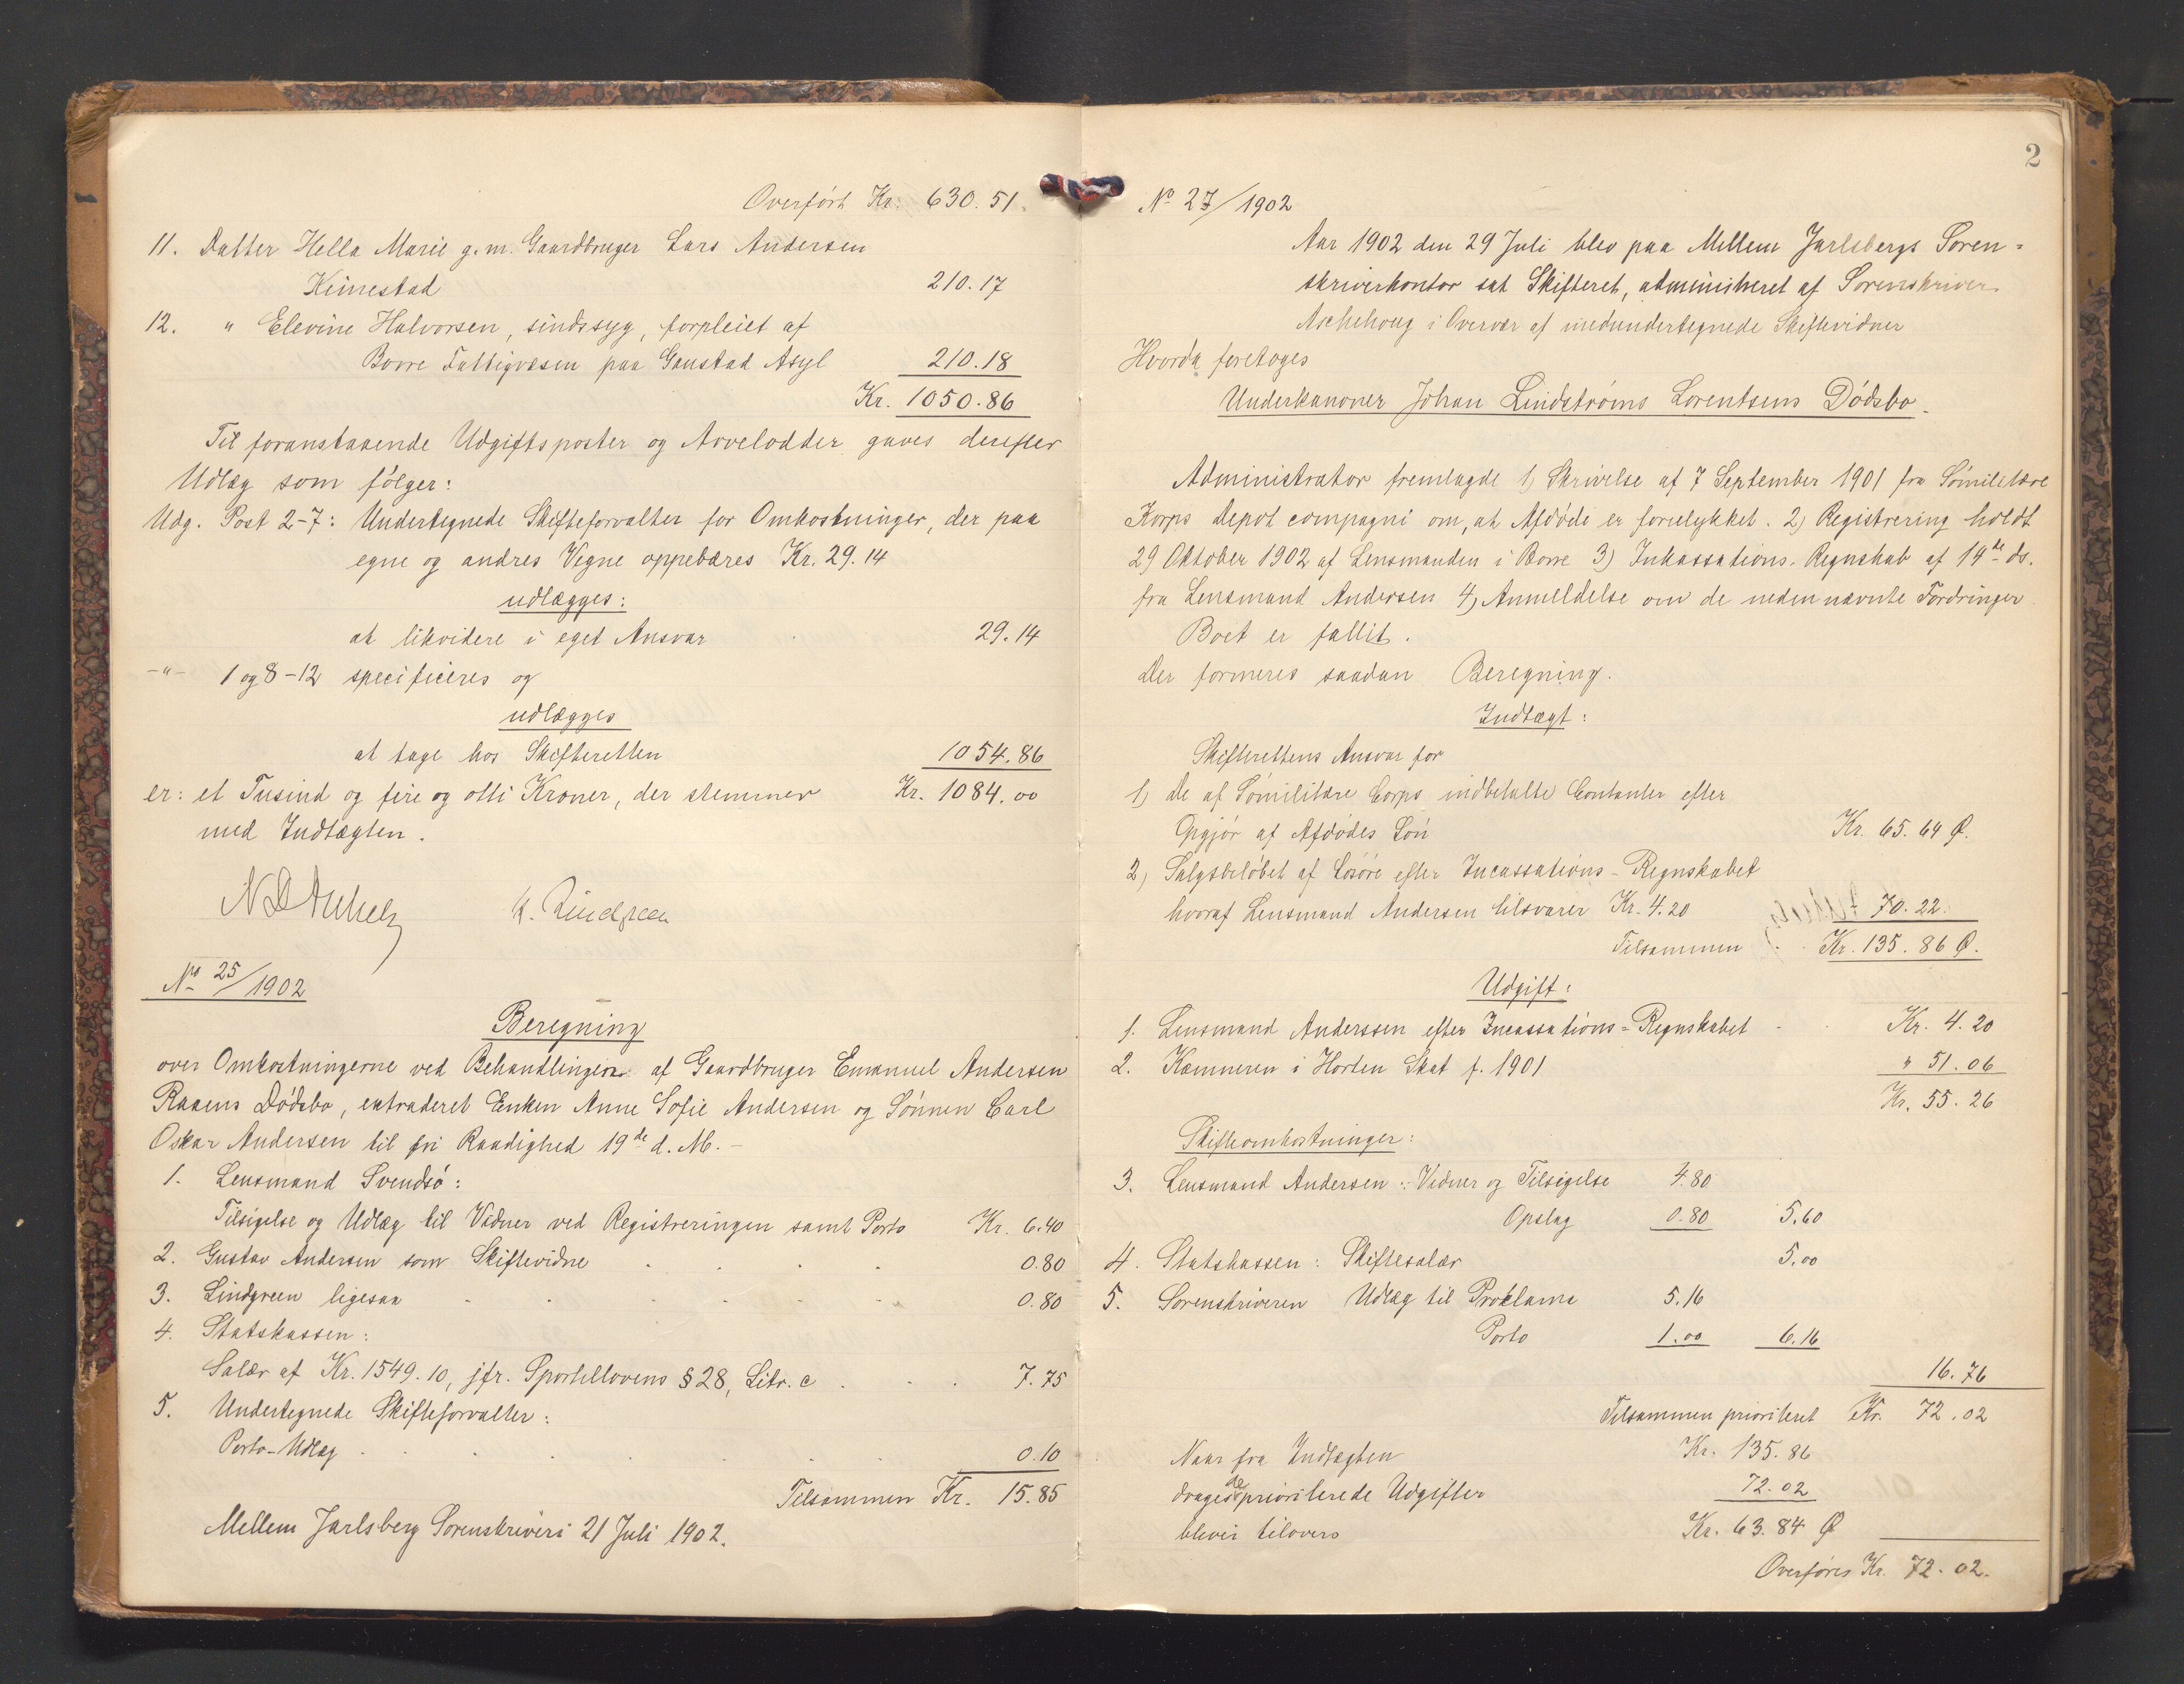 Overført Kr. 630.51.
11. Datter Hella Marie g. m. Gaardbruger Lars Andersen
Kimestad 210.17
12. " Elevine Halvorsen, sindssyg, forpleiet af
Borre Fattigvæsen paa Gaustad Asyl 210.18
Kr. 1050.86
Til foranstaaende Udgiftsposter og Arvelodder gaves derefter
Udlæg som følger:
Udg. Post 2-7: Undertegnede Skifteforvalter for Omkostninger, der paa
egne og andres Vegne oppebæres Kr. 29.14
udlægges:
at likvidere i eget Ansvar 29.14
-"- 1 og 8-12 specificeres og
udlægges
at tage hos Skifteretten 1054.86
er: et Tusind og fire og otti Kroner, der stemmer Kr. 1084.00
med Indtægten.
K. Lindgreen
No 25/1902
Beregning
over Omkostningerne ved Behandlingen af Gaardbruger Emanuel Andersen
Raaens Dødsbo, extraderet Enken Anne Sofie Andersen og Sønnen Carl
Oskar Andersen til fri Raadighed 19de d. M. -
1. Lensmand Svendsø:
Tilsigelse og Udlæg til Vidner ved Registreringen samt Porto Kr. 6.40
2. Gustav Andersen som Skiftevidne 0.80
3. Lindgreen ligesaa 0.80
4. Statskassen:
Salær af Kr. 1549.10, jfr. Sportellovens § 28, Litr. c 7.75
5. Undertegnede Skifteforvalter:
Porto-Udlæg 0.10
Tilsammen Kr. 15.85
Mellem Jarlsberg Sorenskriveri 21 Juli 1902.
2
No 27/1902
Aar 1902 den 29 Juli blev paa Mellem Jarlsbergs Soren=
skriverkontor sat Skifteret, administreret af Sorenskriver
Aschehoug i Overvær af medundertegnede Skiftevidner
Hvorda foretoges
Underkanoner Johan Lindstrøms Lorentsens Dødsbo.
Administrator fremlagde 1) Skrivelse af 7 September 1901 fra Sømilitære
Korps Depot compagni om, at Afdøde er forulykket. 2) Registrering holdt
29 Oktober 1902 af Lensmanden i Borre 3) Inkassations-Regnskab af 14de ds.
fra Lensmand Andersen 4) Anmeldelse om de nedennævnte Fordringer
Boet er fallit.
Der formeres saadan Beregning.
Indtægt:
Skifterettens Ansvar for
1) De af Sømilitære Corps indbetalte Contanter efter
Opgjør af Afdødes Løn Kr. 65.64 Ø.
2) Salgsbeløbet af Løsøre efter Incassations-Regnskabet
hvoraf Lensmand Andersen tilsvarer Kr. 4.20 70.22.
Tilsammen Kr. 135.86 Ø.
Udgift:
1. Lensmand Anderssen efter Incassations-Regnskabet Kr. 4.20
2. Kæmneren i Horten Skat f. 1901 " 51.06
Kr. 55.26
Skifteomkostninger:
3. Lensmand Andersen: Vidner og Tilsigelse 4.80
Opslag 0.80 5.60
4. Statskassen: Skiftesalær 5.00
5. Sorenskriveren Udlæg til Proklama 5.16
Porto 1.00 6.16
16.76
Tilsammen prioriteret Kr. 72.02
Naar fra Indtægten Kr. 135.86
drages de prioriterede Udgifter 72.02
bliver tilovers Kr. 63.84 Ø
Overføres Kr. 72.02.